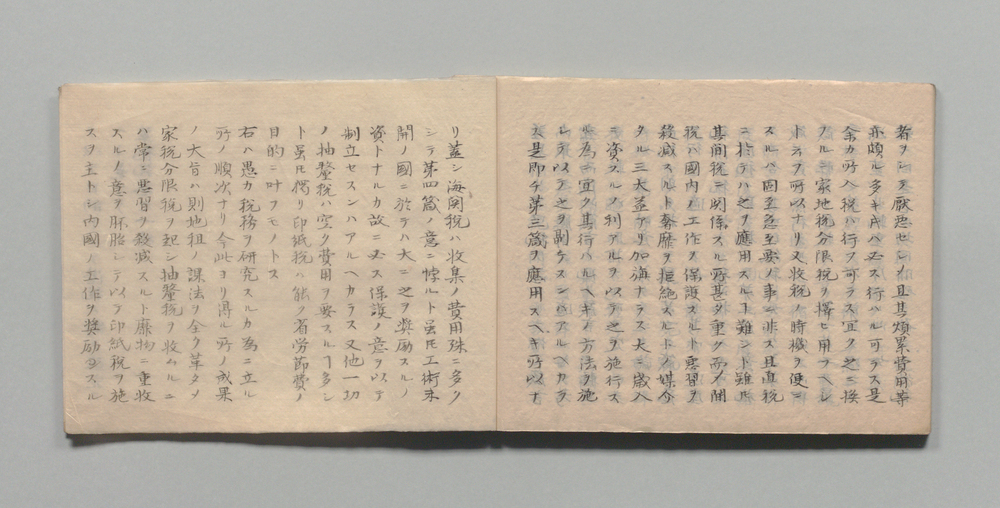 者ヲシテ厭悪セシメ且其煩累費用等
亦頗ル多キ片ハ必ス行ハル可ラス是
余カ所入税ハ行フ可ラス宜ク之ニ換
フルニ家地税分限税ヲ擇ヒ用フヘシ
ト云フ所以ナリ又收税ノ時機ヲ便ニ
スルハ固至急至要ノ事ニ非ス且直税
ニ於テハ之ヲ應用スルヿ難シト雖𪜈
其間税ニ關係スル所甚タ重ク而メ間
税ハ國内ノ工作ヲ保護スルト悪習ヲ
殺減スルト奢靡ヲ拒絶スルトノ媒介
タル三大益アリ加旃ナラス大ニ歳入
ニ資スルノ利アルヲ以テ之ヲ施行ス
ル為ニ宜ク其行ハルヘキノ方法ヲ施
シテ以テ之ヲ副ケスンハアルヘカラ
ス是即チ第三箴ヲ應用スヘキ所以ナ
リ蓋シ海関税ハ收集ノ費用殊ニ多ク
シテ第四箴ノ意ニ悖ルト雖𪜈工術未
開ノ國ニ於テハ大ニ之ヲ奨励スルノ
資トナルカ故ニ必ス保護ノ意ヲ以テ
制立セスンハアルヘカラス又他一切
ノ抽釐税ハ空ク費用ヲ要スルヿ多シ
ト雖𪜈獨リ印紙税ハ能ク省労節費ノ
目的ニ叶フモノトス
右ハ愚カ税務ヲ研究スルカ為ニ立ル
所ノ順次ナリ今此ヨリ得ル所ノ成果
ノ大旨ハ則地租ノ課法ヲ全ク革タメ
家税分限税ヲ起シ抽釐税ヲ收ムルニ
ハ常ニ悪習ヲ殺減スルト靡物ニ重收
スルノ意ヲ胚胎シテ以テ印紙税ヲ施
スヲ主トシ内國ノ工作ヲ奨励ヲスル